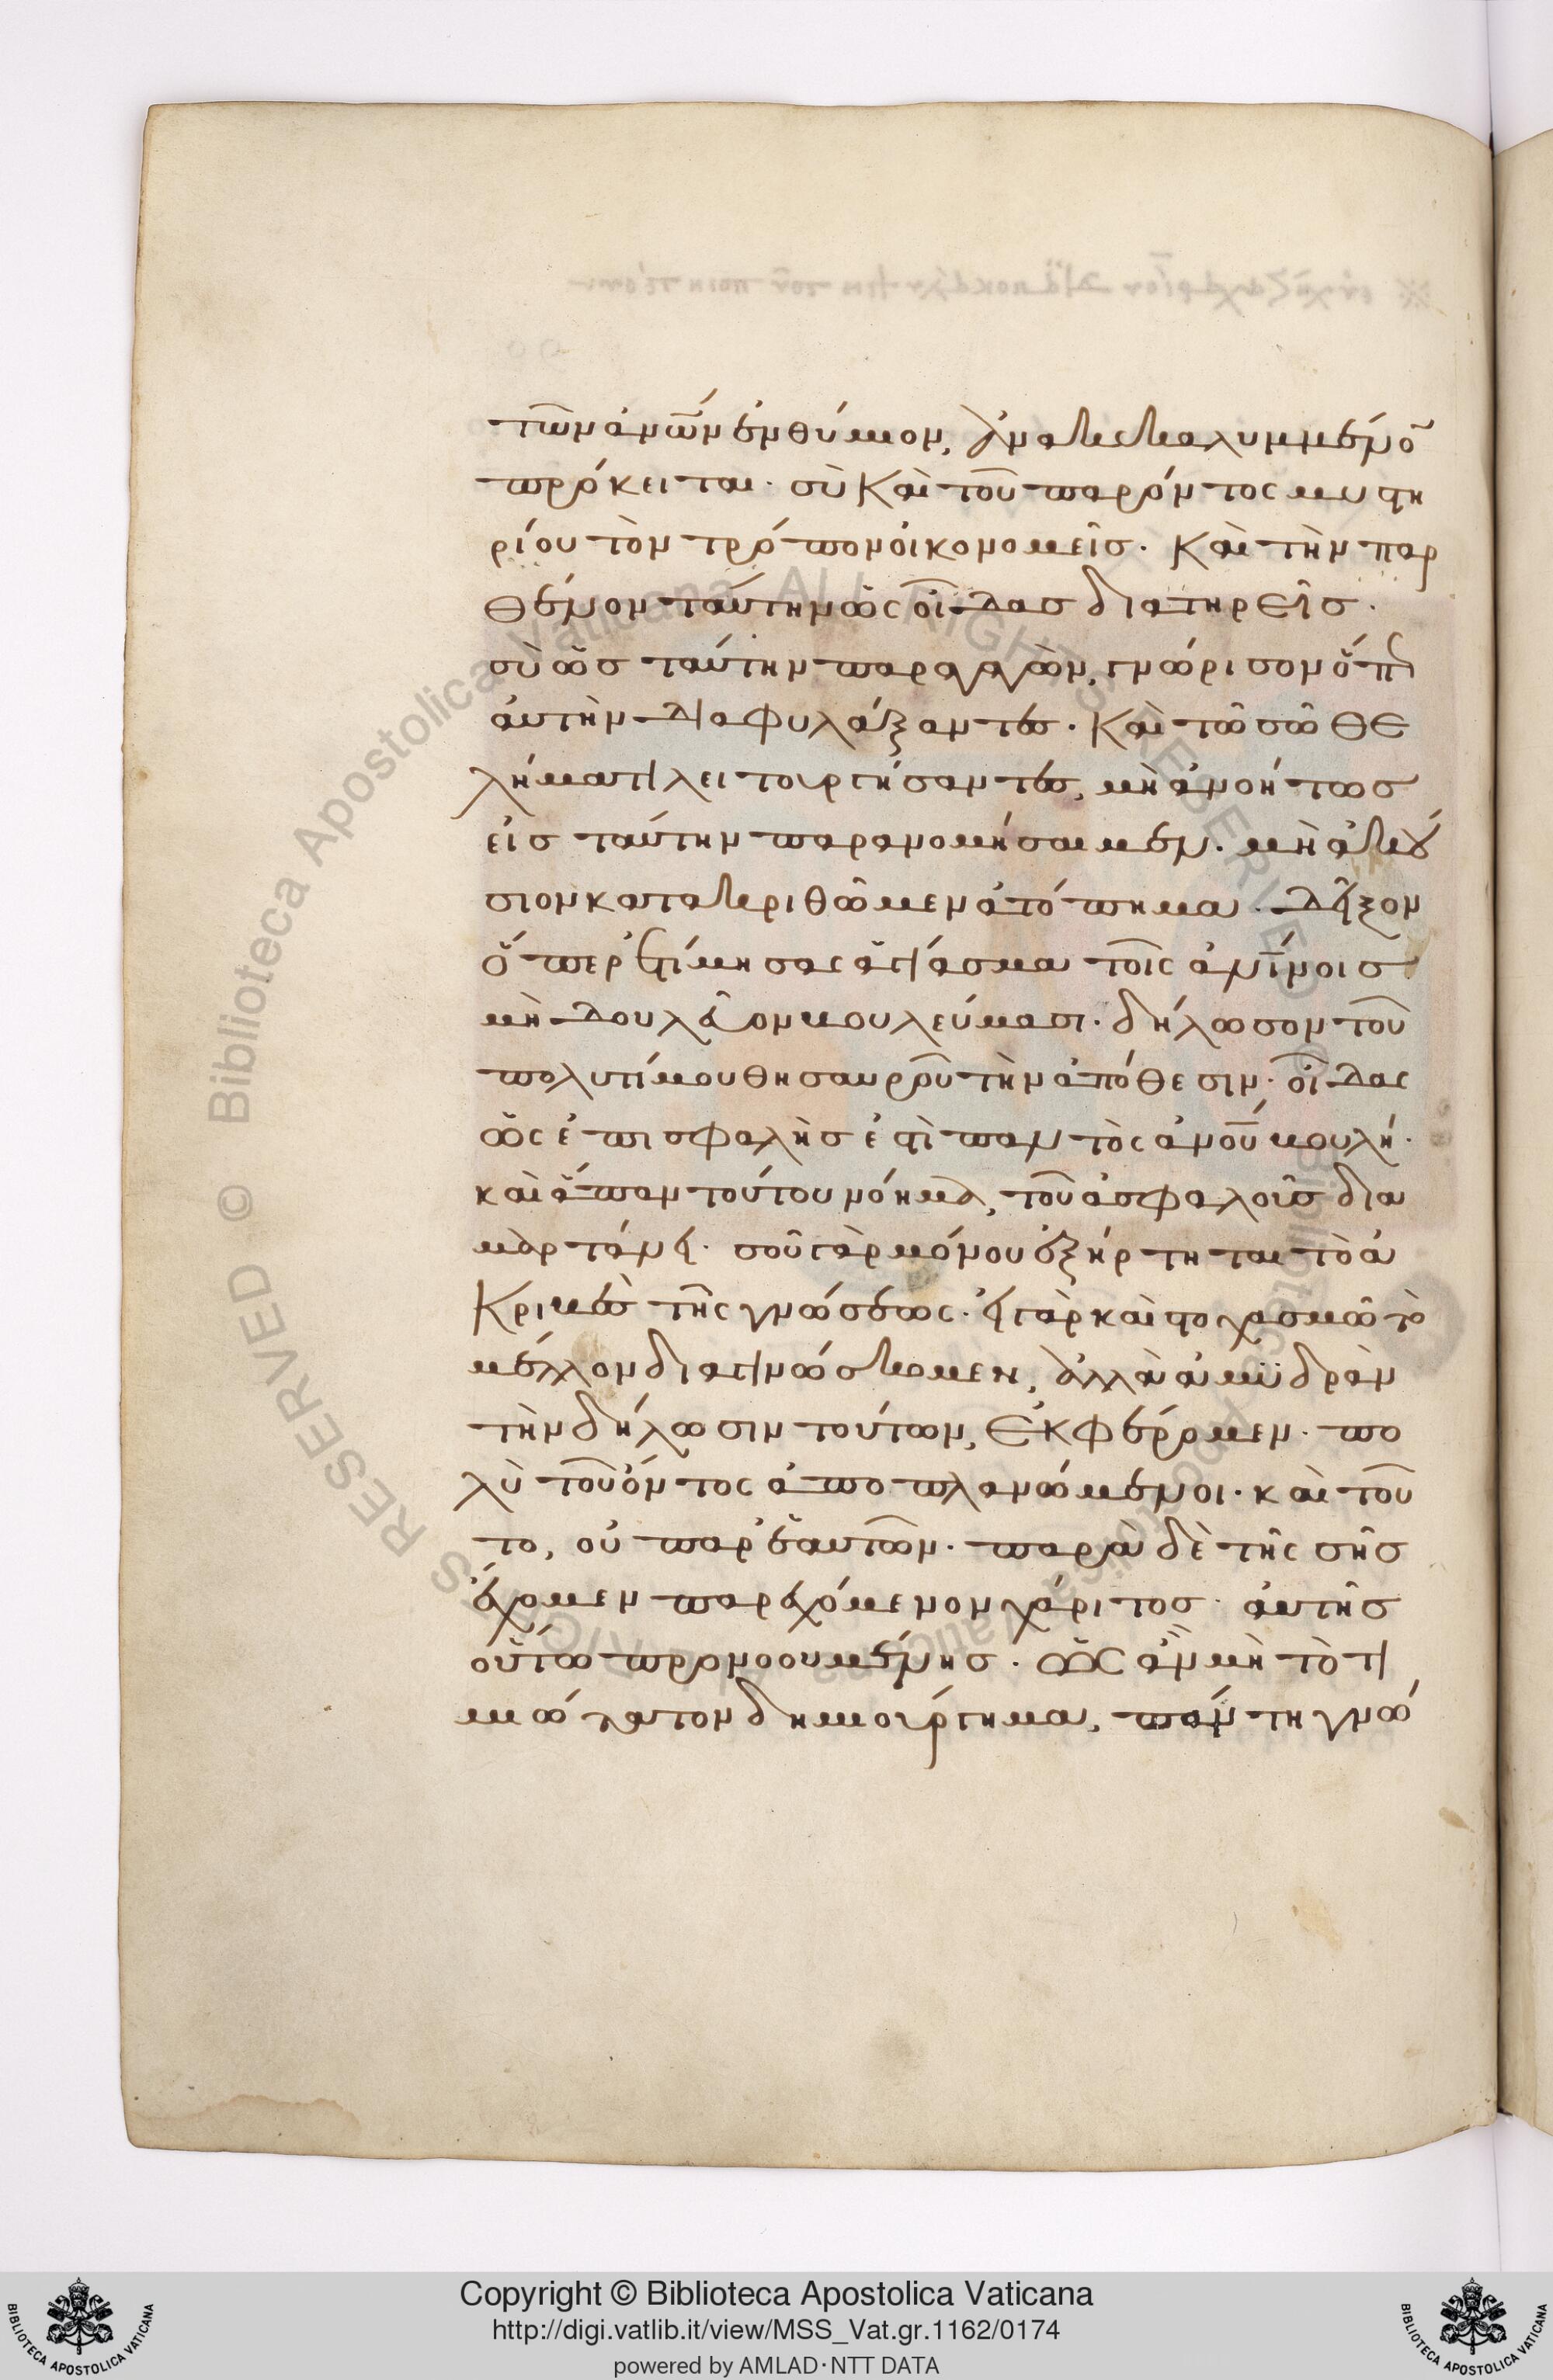 τῶν ἀνῶν ἐνθύμιον, ἀνακεκαλυμμένον
πρόκειται· σὺ καὶ τοῦ παρόντος μυστη
ρίου τὸν τρόπον οἰκονομεῖς· καὶ τὴν παρ
θένον ταύτην ὡς οἶδας διατηρεῖς·
σὺ ὡς ταύτην παραλαβὼν, γνώρισον ὅτι
αὐτὴν διαφυλάξαντες· καὶ τῶ σῶ θε
λήματι λειτουργήσαντες, μὴ ἀνοήτως
εἰς ταύτην παρανομήσαιμεν· μὴ ἀκού
σιον κατακριθῶμεν ἀτόπημα· δεῖξον
ὅπερ ἐτίμησας ἁγίασμα τοῖς ἀντίμοις
μὴ δουλεῦον βουλεύμασι· δήλωσον τοῦ
πολυτίμου θησαυροῦ τὴν ἀπόθεσιν· οἶδας
ὡς ἐπισφαλὴς ἐπὶ παντὸς ἀνοῦ βουλή·
καὶ ἅπαν τούτου νόημα, τοῦ ἀσφαλοῦς δια
μαρτάνει· σοῦ γὰρ μόνου ἐξήρτηται τὸ ἀ
κριβὲς τῆς γνώσεως· εἰ γὰρ καὶ στοχασμῶ τὸ
μέλλον διαγινώσκομεν, ἀλλὰ ἀμυδρὰν
τὴν δήλωσιν τούτων, ἐκφέρομεν· πο
λὺ τοῦ ὄντος ἀποπλανώμενοι· καὶ τοῦ
το, οὐ παρ ἑαυτῶν· παρὰ δὲ τῆς σῆς
ἔχομεν παρεχόμενον χάριτος· αὐτῆς
οὕτω προνοουμένης· ὡς ἂν μὴ τὸ τι
μιώτατον δημιούργημα, πάντη γνώ